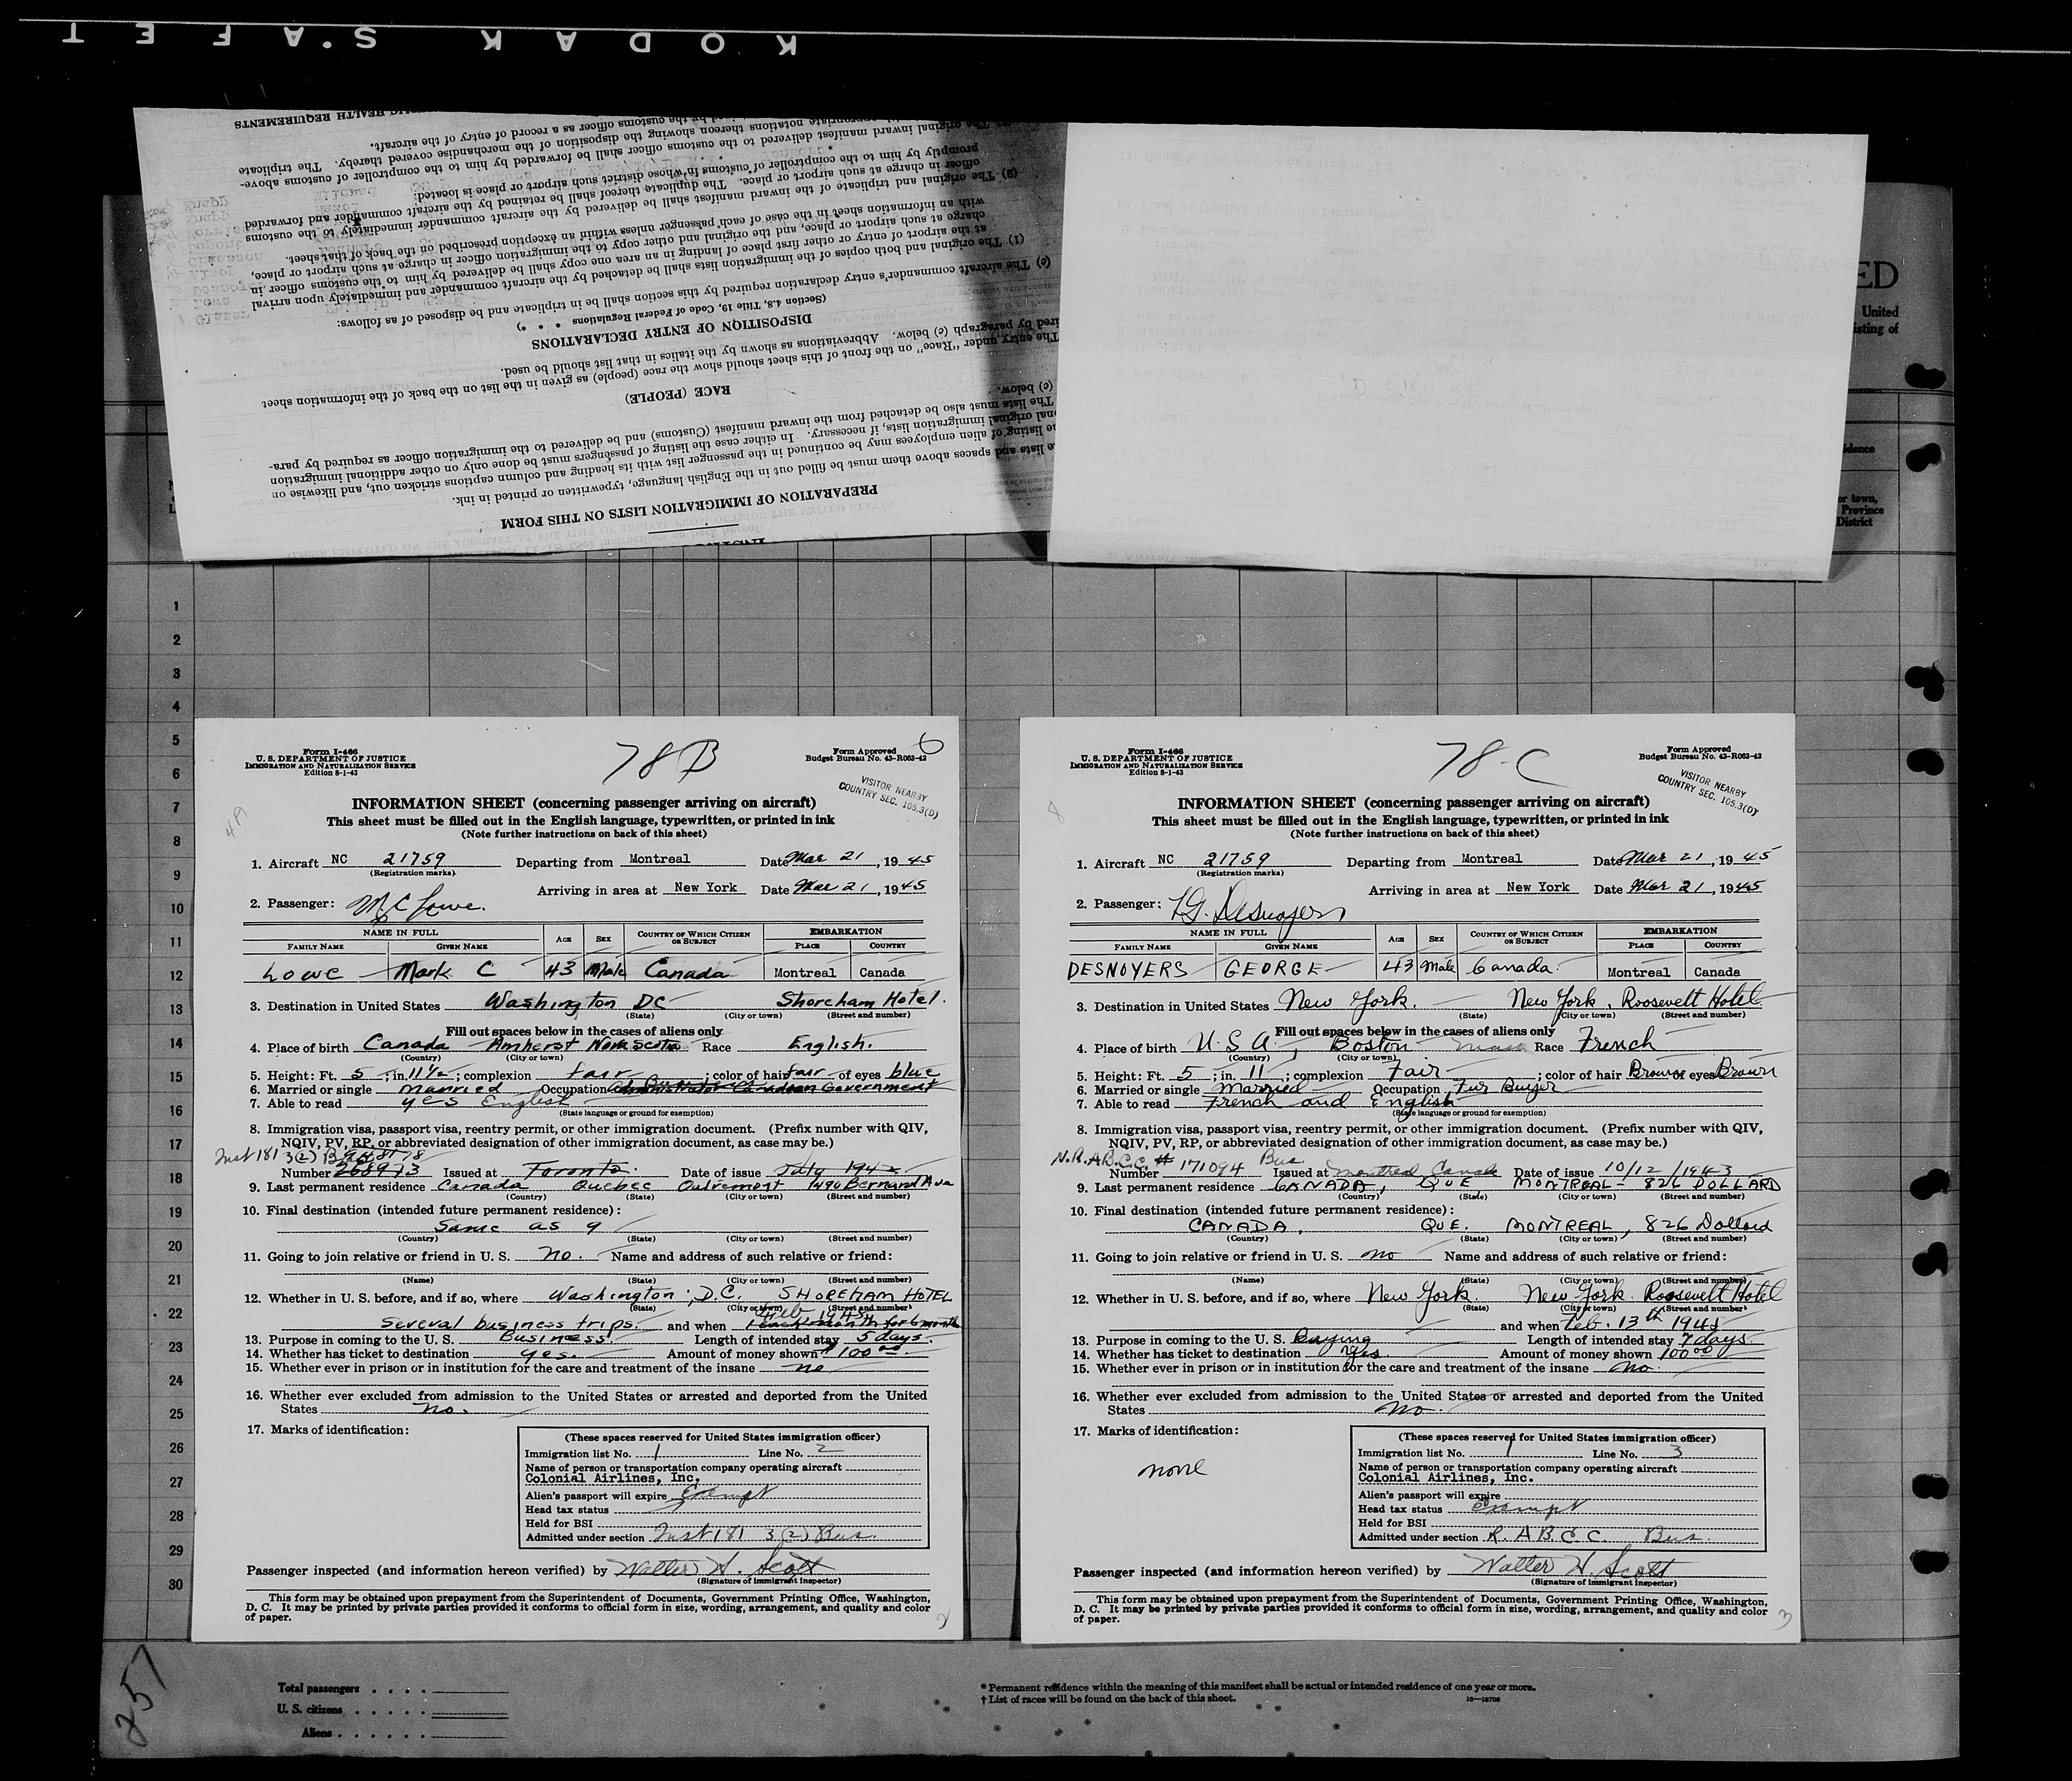 KODAK SAFET
HEALTH REQUIREMENTS
by the customs officer as a record of entry of the aircraft.
appropriate notations thereon showing the disposition of the merchandise covered thereby. The triplicate
The original inward manifest delivered to the customs officer shall be forwarded by him to the comptroller of customs above-
promptly by him to the comptroller of customs in whose district such airport or place is located;
officer in charge at such airport or place. The duplicate thereof shall be retained by the aircraft commander and forwarded
(2) The original and triplicate of the inward manifest shall be delivered by the aircraft commander immediately to the customs
with an information sheet in the case of each passenger unless within an exception prescribed on the back of that sheet.
charge at such airport or place, and the original and other copy to the immigration officer in charge at such airport or place,
at the airport of entry or other first place of landing in an area one copy shall be delivered by him to the customs officer in
(1) The original and both copies of the immigration lists shall be detached by the aircraft commander and immediately upon arrival
(c) The aircraft commander's entry declaration required by this section shall be in triplicate and be disposed of as follows:
(Section 4.8, Title 19, Code of Federal Regulations * * *)
DISPOSITION OF ENTRY DECLARATIONS
ired by paragraph (c) below. Abbreviations as shown by the italics in that list should be used.
The entry under "Race" on the front of this sheet should show the race (people) as given in the list on the back of the information sheet
RACE (PEOPLE)
(c) below.
The lists must also be detached from the inward manifest (Customs) and be delivered to the immigration officer as required by para-
onal original immigration lists, if necessary. In either case the listing of passengers must be done only on other additional immigration
he listing of alien employees may be continued in the passenger list with its heading and column captions stricken out, and likewise on
e lists and spaces above them must be filled out in the English language, typewritten or printed in ink.
PREPARATION OF IMMIGRATION LISTS ON THIS FORM
ED
United
isting of
idence
or town,
Province
District
1
2
3
4
5
6
7
8
9
10
11
12
13
14
15
16
17
18
19
20
21
22
23
24
25
26
27
28
29
30
Form I-466
U. S. DEPARTMENT OF JUSTICE
IMMIGRATION AND NATURALIZATION SERVICE
Edition 8-1-43
78 B
6
Form Approved
Budget Bureau No. 43-R063-42
VISITOR NEARBY
COUNTRY SEC. 105.3(D)
INFORMATION SHEET (concerning passenger arriving on aircraft)
This sheet must be filled out in the English language, typewritten, or printed in ink
(Note further instructions on back of this sheet)
1. Aircraft NC 21759 Departing from Montreal Date Mar 21, 1945
(Registration marks)
Arriving in area at New York Date Mar 21, 1945
2. Passenger: M C Lowe.
NAME IN FULL AGE SEX COUNTRY OF WHICH CITIZEN OR SUBJECT EMBARKATION
FAMILY NAME GIVEN NAME PLACE COUNTRY
Lowe Mark C 43 Male Canada Montreal Canada
3. Destination in United States Washington DC Shoreham Hotel.
(State) (City or town) (Street and number)
Fill out spaces below in the cases of aliens only
4. Place of birth Canada Amherst Nova Scotia Race English.
(Country) (City or town)
5. Height: Ft. 5; in. 11 1/2; complexion fair; color of hair fair of eyes blue
6. Married or single Married Occupation Administrator Canadian Government
7. Able to read yes English
(State language or ground for exemption)
8. Immigration visa, passport visa, reentry permit, or other immigration document. (Prefix number with QIV,
NQIV, PV, RP, or abbreviated designation of other immigration document, as case may be.)
Inst 181 3(2)
Number 268973 Issued at Toronto. Date of issue July 1942
9. Last permanent residence Canada Quebec Outremont 1490 Bernard Ave
(Country) (State) (City or town) (Street and number)
10. Final destination (intended future permanent residence):
Same as 9
(Country) (State) (City or town) (Street and number)
11. Going to join relative or friend in U. S. no. Name and address of such relative or friend:
(Name) (State) (City or town) (Street and number)
12. Whether in U. S. before, and if so, where Washington, D.C. SHOREHAM HOTEL
(State) (City or town) (Street and number)
Feb 1945
Several business trips. and when 1 each month for 6 month
13. Purpose in coming to the U. S. Business. Length of intended stay 5 days.
14. Whether has ticket to destination yes. Amount of money shown $100 00.
15. Whether ever in prison or in institution for the care and treatment of the insane no
16. Whether ever excluded from admission to the United States or arrested and deported from the United
States no.
17. Marks of identification:
(These spaces reserved for United States immigration officer)
Immigration list No. 1 Line No. 2
Name of person or transportation company operating aircraft
Colonial Airlines, Inc.
Alien's passport will expire Exempt
Head tax status
Held for BSI
Admitted under section Inst 181 3(2) Bus.
Passenger inspected (and information hereon verified) by Walter H. Scott
(Signature of immigrant inspector)
This form may be obtained upon prepayment from the Superintendent of Documents, Government Printing Office, Washington,
D. C. It may be printed by private parties provided it conforms to official form in size, wording, arrangement, and quality and color
of paper.
2
Form I-466
U. S. DEPARTMENT OF JUSTICE
IMMIGRATION AND NATURALIZATION SERVICE
Edition 8-1-43
78-C
Form Approved
Budget Bureau No. 43-R063-42
VISITOR NEARBY
COUNTRY SEC. 105.3(D)
8
INFORMATION SHEET (concerning passenger arriving on aircraft)
This sheet must be filled out in the English language, typewritten, or printed in ink
(Note further instructions on back of this sheet)
1. Aircraft NC 21759 Departing from Montreal Date Mar 21, 1945
(Registration marks)
Arriving in area at New York Date Mar 21, 1945
2. Passenger: G. Desnoyers
NAME IN FULL AGE SEX COUNTRY OF WHICH CITIZEN OR SUBJECT EMBARKATION
FAMILY NAME GIVEN NAME PLACE COUNTRY
DESNOYERS GEORGE 43 Male Canada. Montreal Canada
3. Destination in United States New York. New York. Roosevelt Hotel
(State) (City or town) (Street and number)
Fill out spaces below in the cases of aliens only
4. Place of birth U.S.A., Boston Mass Race French
(Country) (City or town)
5. Height: Ft. 5; in. 11; complexion Fair; color of hair Brown of eyes Brown
6. Married or single Married Occupation Fur Buyer
7. Able to read French and English
(State language or ground for exemption)
8. Immigration visa, passport visa, reentry permit, or other immigration document. (Prefix number with QIV,
NQIV, PV, RP, or abbreviated designation of other immigration document, as case may be.)
N.R.A.B.C.C. # Bus
Number 171094 Issued at Montreal Canada Date of issue 10/12/1943
9. Last permanent residence CANADA, QUE MONTREAL - 826 DOLLARD
(Country) (State) (City or town) (Street and number)
10. Final destination (intended future permanent residence):
CANADA, QUE. MONTREAL, 826 Dollard
(Country) (State) (City or town) (Street and number)
11. Going to join relative or friend in U. S. no Name and address of such relative or friend:
(Name) (State) (City or town) (Street and number)
12. Whether in U. S. before, and if so, where New York. New York. Roosevelt Hotel
(State) (City or town) (Street and number)
and when Feb. 13th 1945
13. Purpose in coming to the U. S. Buying Length of intended stay 7 days.
14. Whether has ticket to destination Yes. Amount of money shown 100 00
15. Whether ever in prison or in institution for the care and treatment of the insane no.
16. Whether ever excluded from admission to the United States or arrested and deported from the United
States no.
17. Marks of identification:
none
(These spaces reserved for United States immigration officer)
Immigration list No. 1 Line No. 3
Name of person or transportation company operating aircraft
Colonial Airlines, Inc.
Alien's passport will expire
Head tax status Exempt
Held for BSI
Admitted under section R.A.B.C.C. Bus.
Passenger inspected (and information hereon verified) by Walter H. Scott
(Signature of immigrant inspector)
This form may be obtained upon prepayment from the Superintendent of Documents, Government Printing Office, Washington,
D. C. It may be printed by private parties provided it conforms to official form in size, wording, arrangement, and quality and color
of paper.
3
257
Total passengers . . . .
U. S. citizens . . . . .
Aliens . . . . . .
* Permanent residence within the meaning of this manifest shall be actual or intended residence of one year or more.
† List of races will be found on the back of this sheet.
16—18708